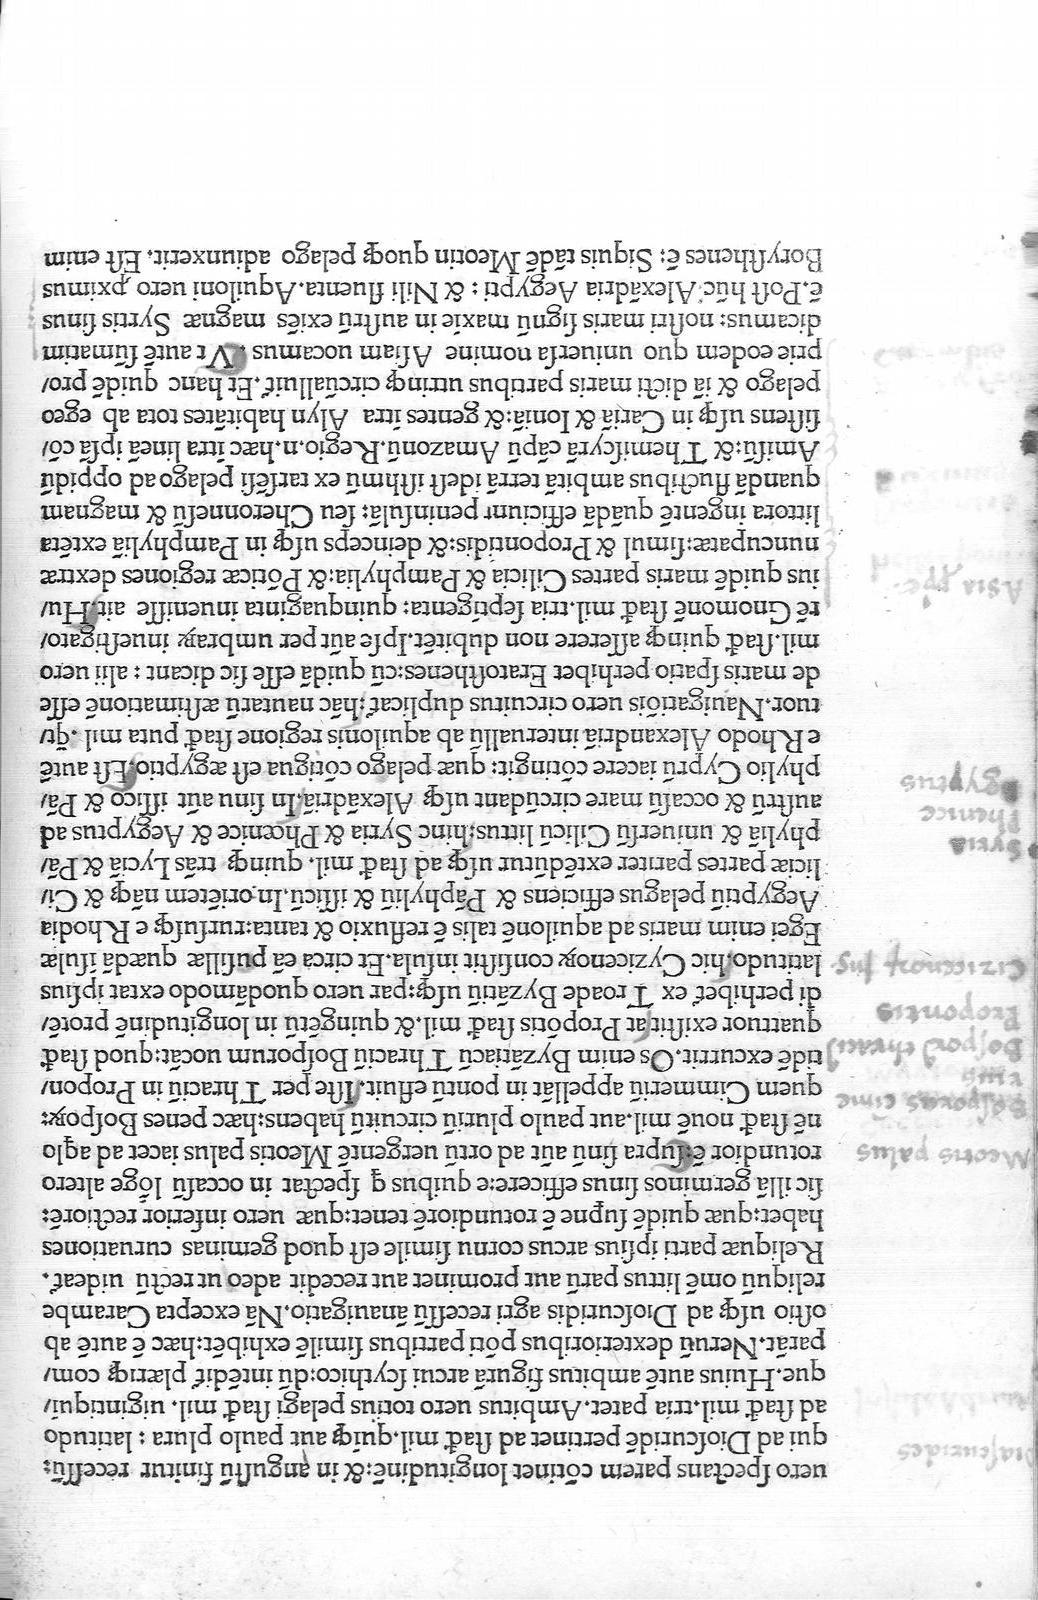 uero spectans parem cōtinet longitudinē:& in angustū finitur recessū:
qui ad Dioscuridē pertinet ad stađ mil.quīq; aut paulo plura : latitudo
ad stađ mil.tria patet.Ambitus uero totius pelagi stađ mil. uigintiquī/
que.Huius autē ambitus figurā arcui scythico:dū intēdit᷑ plæriq; com/
parāt.Neruū dexterioribus pōti partibus simile exhibēt:hæc ē autē ab
ostio usq; ad Dioscuridis agri recessū ānauigatio.Nā excepta Carambe
reliquū omē littus parū aut prominet aut recedit adeo ut rectū uideat᷑.
Reliquæ parti ipsius arcus cornu simile est quod geminas curuationes
habet:quæ quidē suꝑne ē rotundiorē tenet:quæ uero inferior rectiorē:
sic illā germinos sinus efficere:e quibus q spectat in occasū lōge altero
rotundior ē.supra sinū aūt ad ortū uergentē Meotis palus iacet ad aqlo
nē stađ nouē mil.aut paulo pluriū circuitū habens:hæc penes Bosꝑoꝝ:
quem Cimmeriū appellāt in pontū efluit.Iste per Thraciū in Propon/
tidē excurrit.Os enim Byzātiacū Thraciū Bosporum uocāt:quod stađ
quattuor existit:at Propōtis stađ mil.& quingētū in longitudinē protē/
di perhibet᷑ ex Troade Byzātiū usq;:par uero quodāmodo extat ipsius
latitudo.hic Cyzicenoꝝ consistit insula.Et circa eā pusillæ quædā īsulæ
Egei enim maris ad aquilonē talis ē refluxio & tanta:rursusq; e Rhodia
Aegyptiū pelagus efficiens & Pāphyliū & issicū.In oriētem nāq; & Ci/
liciæ partes pariter extēdūtur usq; ad stađ mil. quinq; trās Lyciā & Pā/
phyliā & uniuersū Cilicū littus:hinc Syria & Phœnice & Aegyptus ad
austrū & occasū mare circūdant usq; Alexādriā.In sinu aūt issico & Pā/
phylio Cyprū iacere cōtingit: quæ pelago cōtigua est ægyptio.Est autē
e Rhodo Alexandriā interuallū ab aquilonis regione stađ puta mil .q̄t/
tuor.Nauigatiōis uero circuitus duplicat᷑:hāc nautarū æstimationē esse
de maris spatio perhibet Eratosthenes:cū quidā esse sic dicant : alii uero
mil.stađ quinq; asserere non dubitēt.Ipse aūt per umbraꝝ inuestigato/
rē Gnomonē stađ mil.tria septigenta: quinquaginta inuenisse ait.Hu/
ius quidē maris partes Cilicia & Pamphylia:& Pōticæ regiones dextræ
nuncupatæ:simul & Propontidis:& deinceps usq; in Pamphyliā extēta
littora ingentē quādā efficiunt peninsulā: seu Cheronnesū & magnam
quandā fluctibus ambitā terrā idest isthmū ex tarsēsi pelago ad oppidū
Amisū:& Themiscyrā cāpū Amazonū.Regio.n.hæc itra lineā ipsā cō/
sistens usq; in Cariā & Ioniā:& gentes itra Alyn habitātes tota ab egeo
pelago & iā dicti maris partibus utrinq; circūalluit᷑.Et hanc quidē pro/
prie eodem quo uniuersa nomine Asiam uocamus . Vt autē sūmatim
dicamus: nostri maris signū maxīe in austrū exiēs magnæ Syrtis sinus
ē.Post hūc:Alexādria Aegypti : & Nili fluenta.Aquiloni uero ꝓximus
Borysthenes ē: Siquis tādē Meotin quoq; pelago adiunxerit. Est enim
Meotis palus
Bosporus cime
rius
Bosporꝰ thraciꝰ
Propontis
Cizicenoꝝ Ins.
Syria
Phenice
Egyptus
Asia ppe.